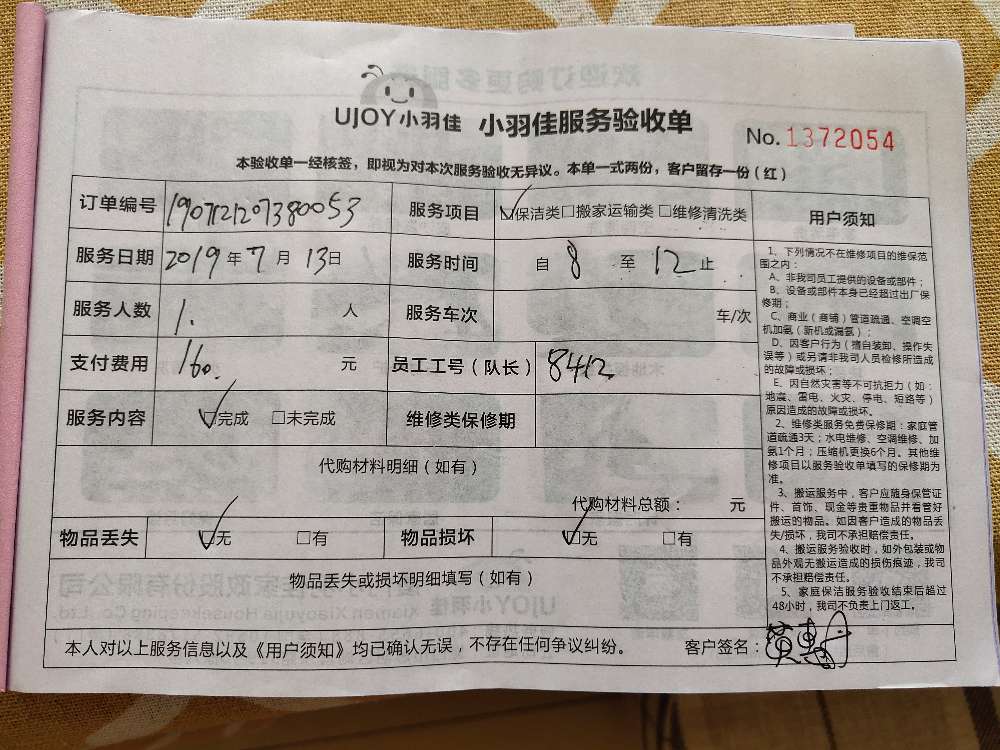 UJOY小羽佳 小羽佳服务验收单
No. 1372054
本验收单一经核签，即视为对本次服务验收无异议。本单一式两份，客户留存一份（红）
订单编号 1907121207380053 服务项目 ☑保洁类 □搬家运输类 □维修清洗类
服务日期 2019年7月13日 服务时间 自 8 至 12 止
服务人数 1. 人 服务车次 车/次
支付费用 160. 元 员工工号（队长） 8412
服务内容 ☑完成 □未完成 维修类保修期
代购材料明细（如有）
代购材料总额： 元
物品丢失 ☑无 □有 物品损坏 ☑无 □有
物品丢失或损坏明细填写（如有）
本人对以上服务信息以及《用户须知》均已确认无误，不存在任何争议纠纷。 客户签名：黄惠
用户须知
1、下列情况不在维修项目的维保范
围之内：
A、非我司员工提供的设备或部件；
B、设备或部件本身已经超过出厂保
修期；
C、商业（商铺）管道疏通、空调空
机加氨（新机或漏氨）；
D、因客户行为（擅自装卸、操作失
误等）或另请非我司人员检修所造成
的故障或损坏；
E、因自然灾害等不可抗拒力（如：
地震、雷电、火灾、停电、短路等）
原因造成的故障或损坏。
2、维修类服务免费保修期：家庭管
道疏通3天；水电维修、空调维修、加
氨1个月；压缩机更换6个月。其他维
修项目以服务验收单填写的保修期为
准。
3、搬运服务中，客户应随身保管证
件、首饰、现金等贵重物品并看管好
搬运的物品。如因客户造成的物品丢
失/损坏，我司不承担赔偿责任。
4、搬运服务验收时，如外包装或物
品外观无搬运造成的损伤痕迹，我司
不承担赔偿责任。
5、家庭保洁服务验收结束后超过
48小时，我司不负责上门返工。